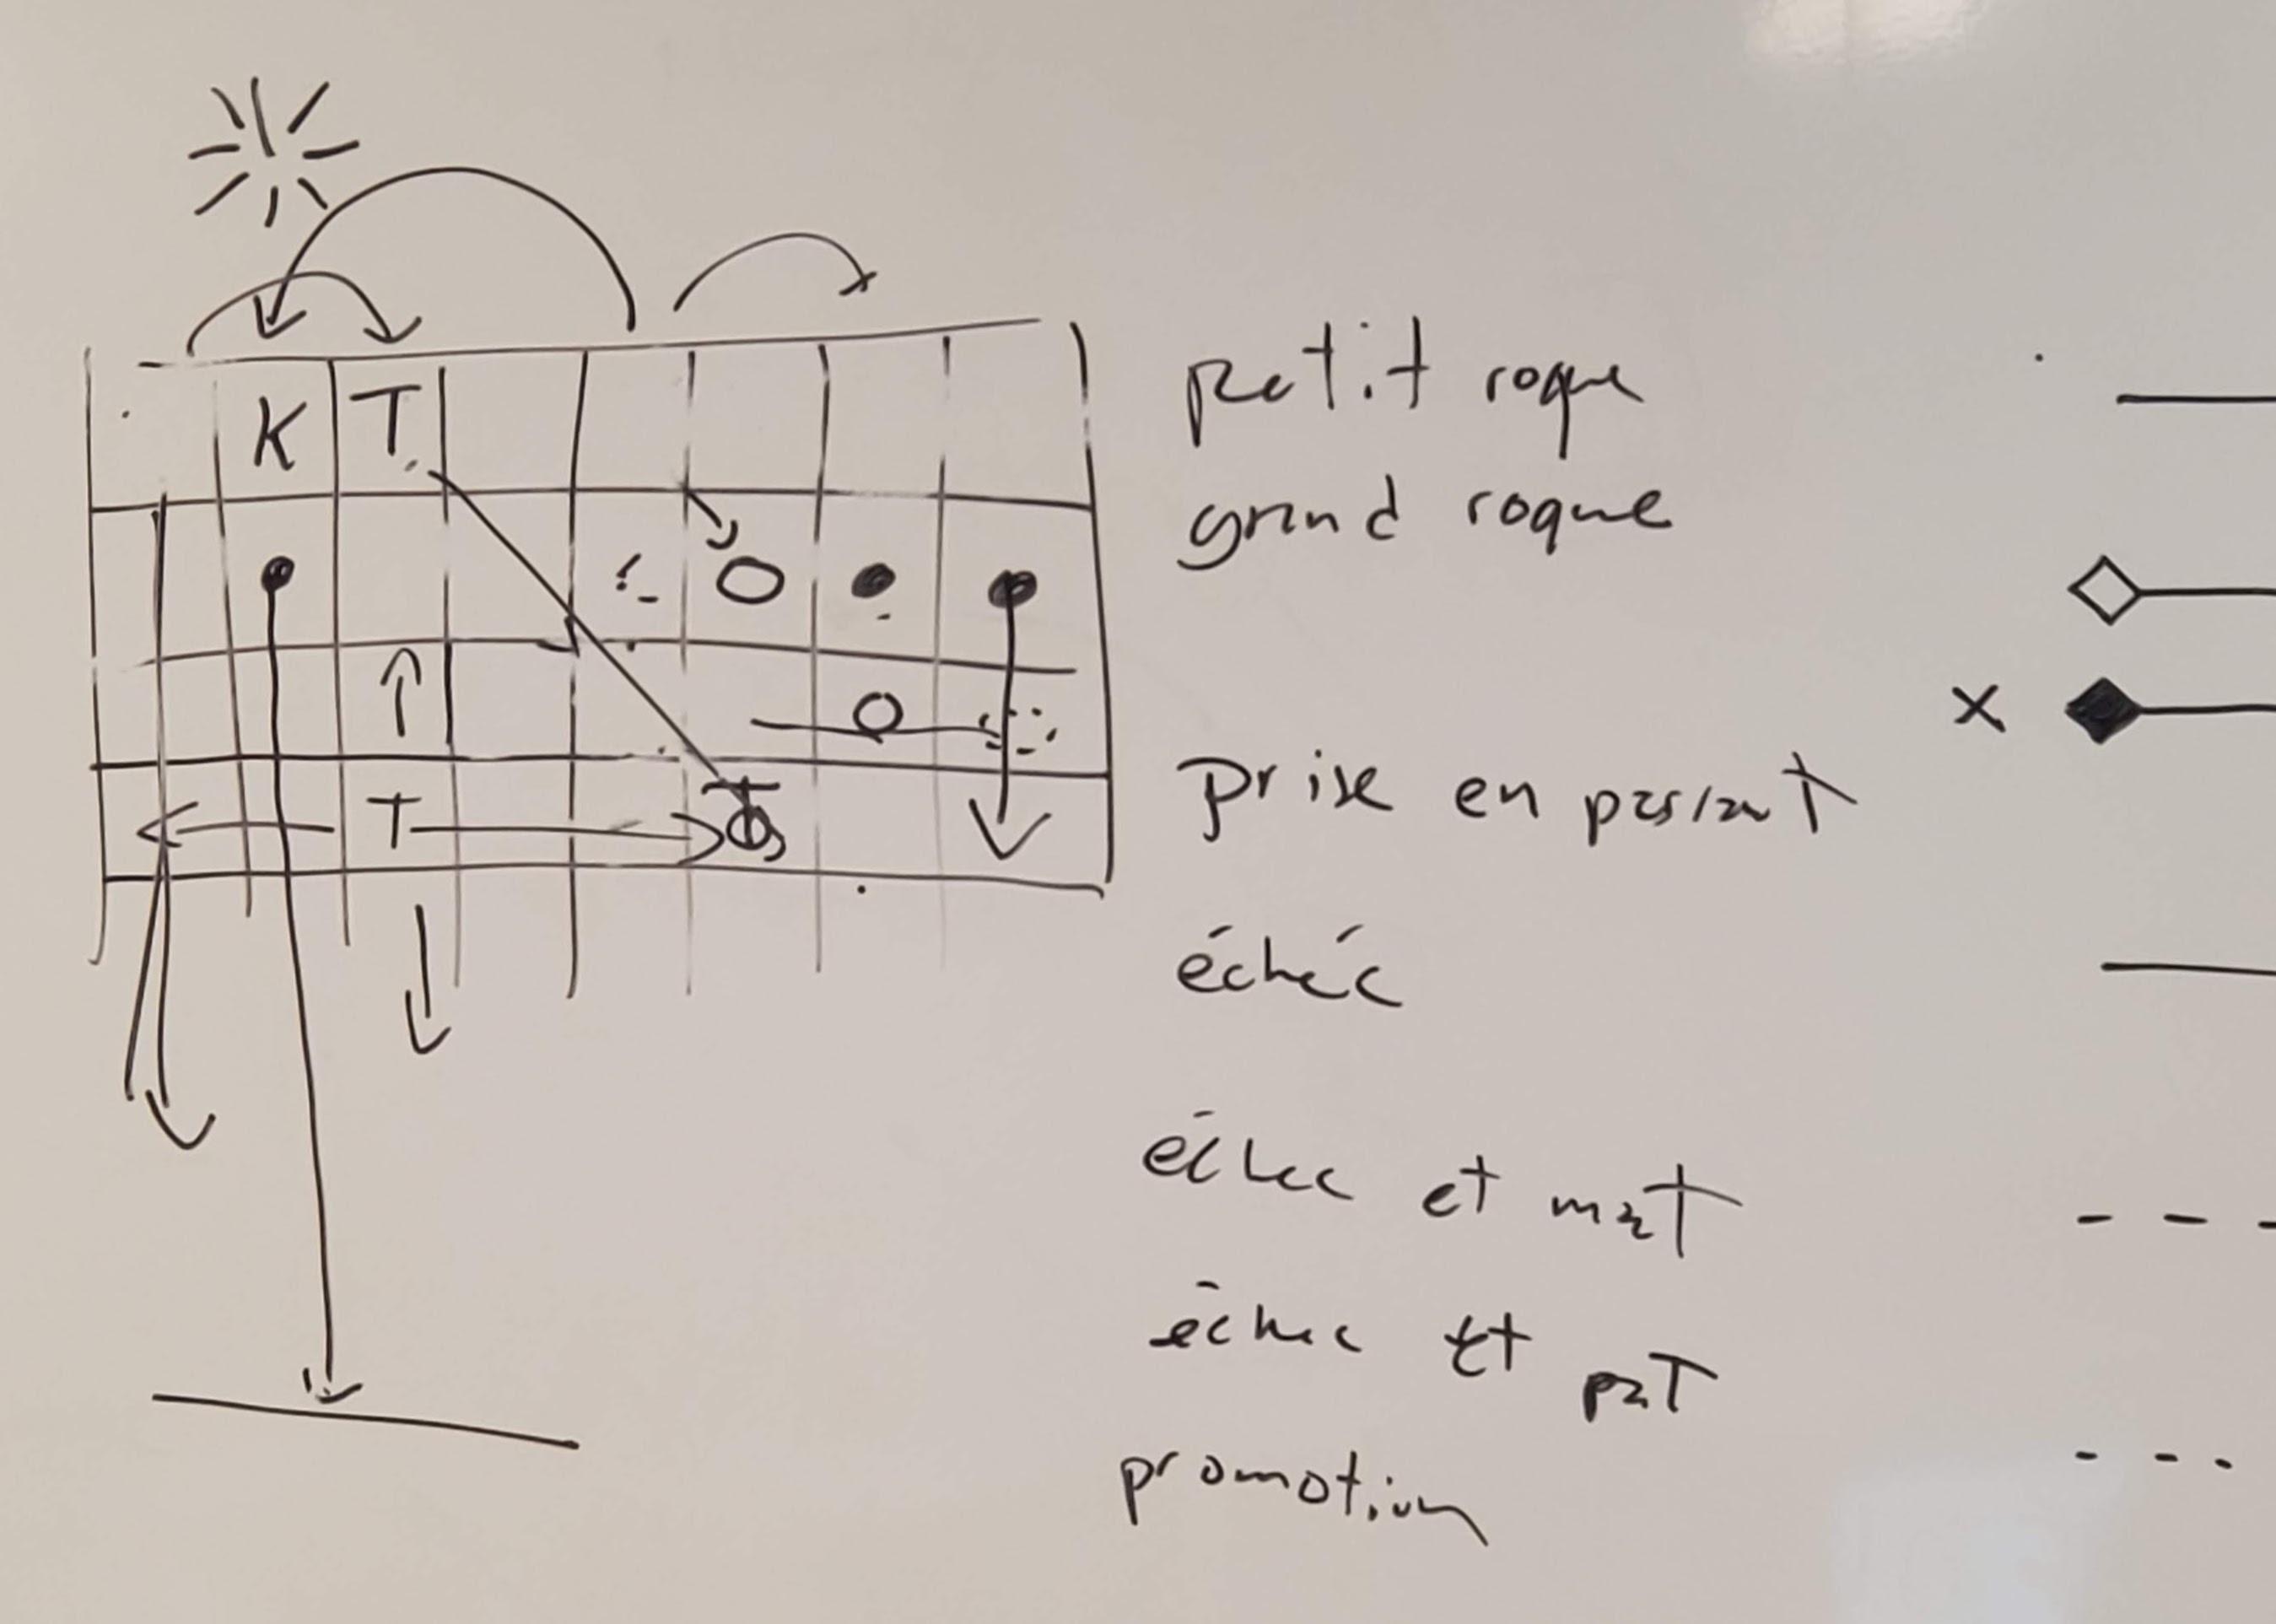 K T
T T
petit roque
grand roque
prise en passant
échéc
échec et mat
échec et pat
promotion
X